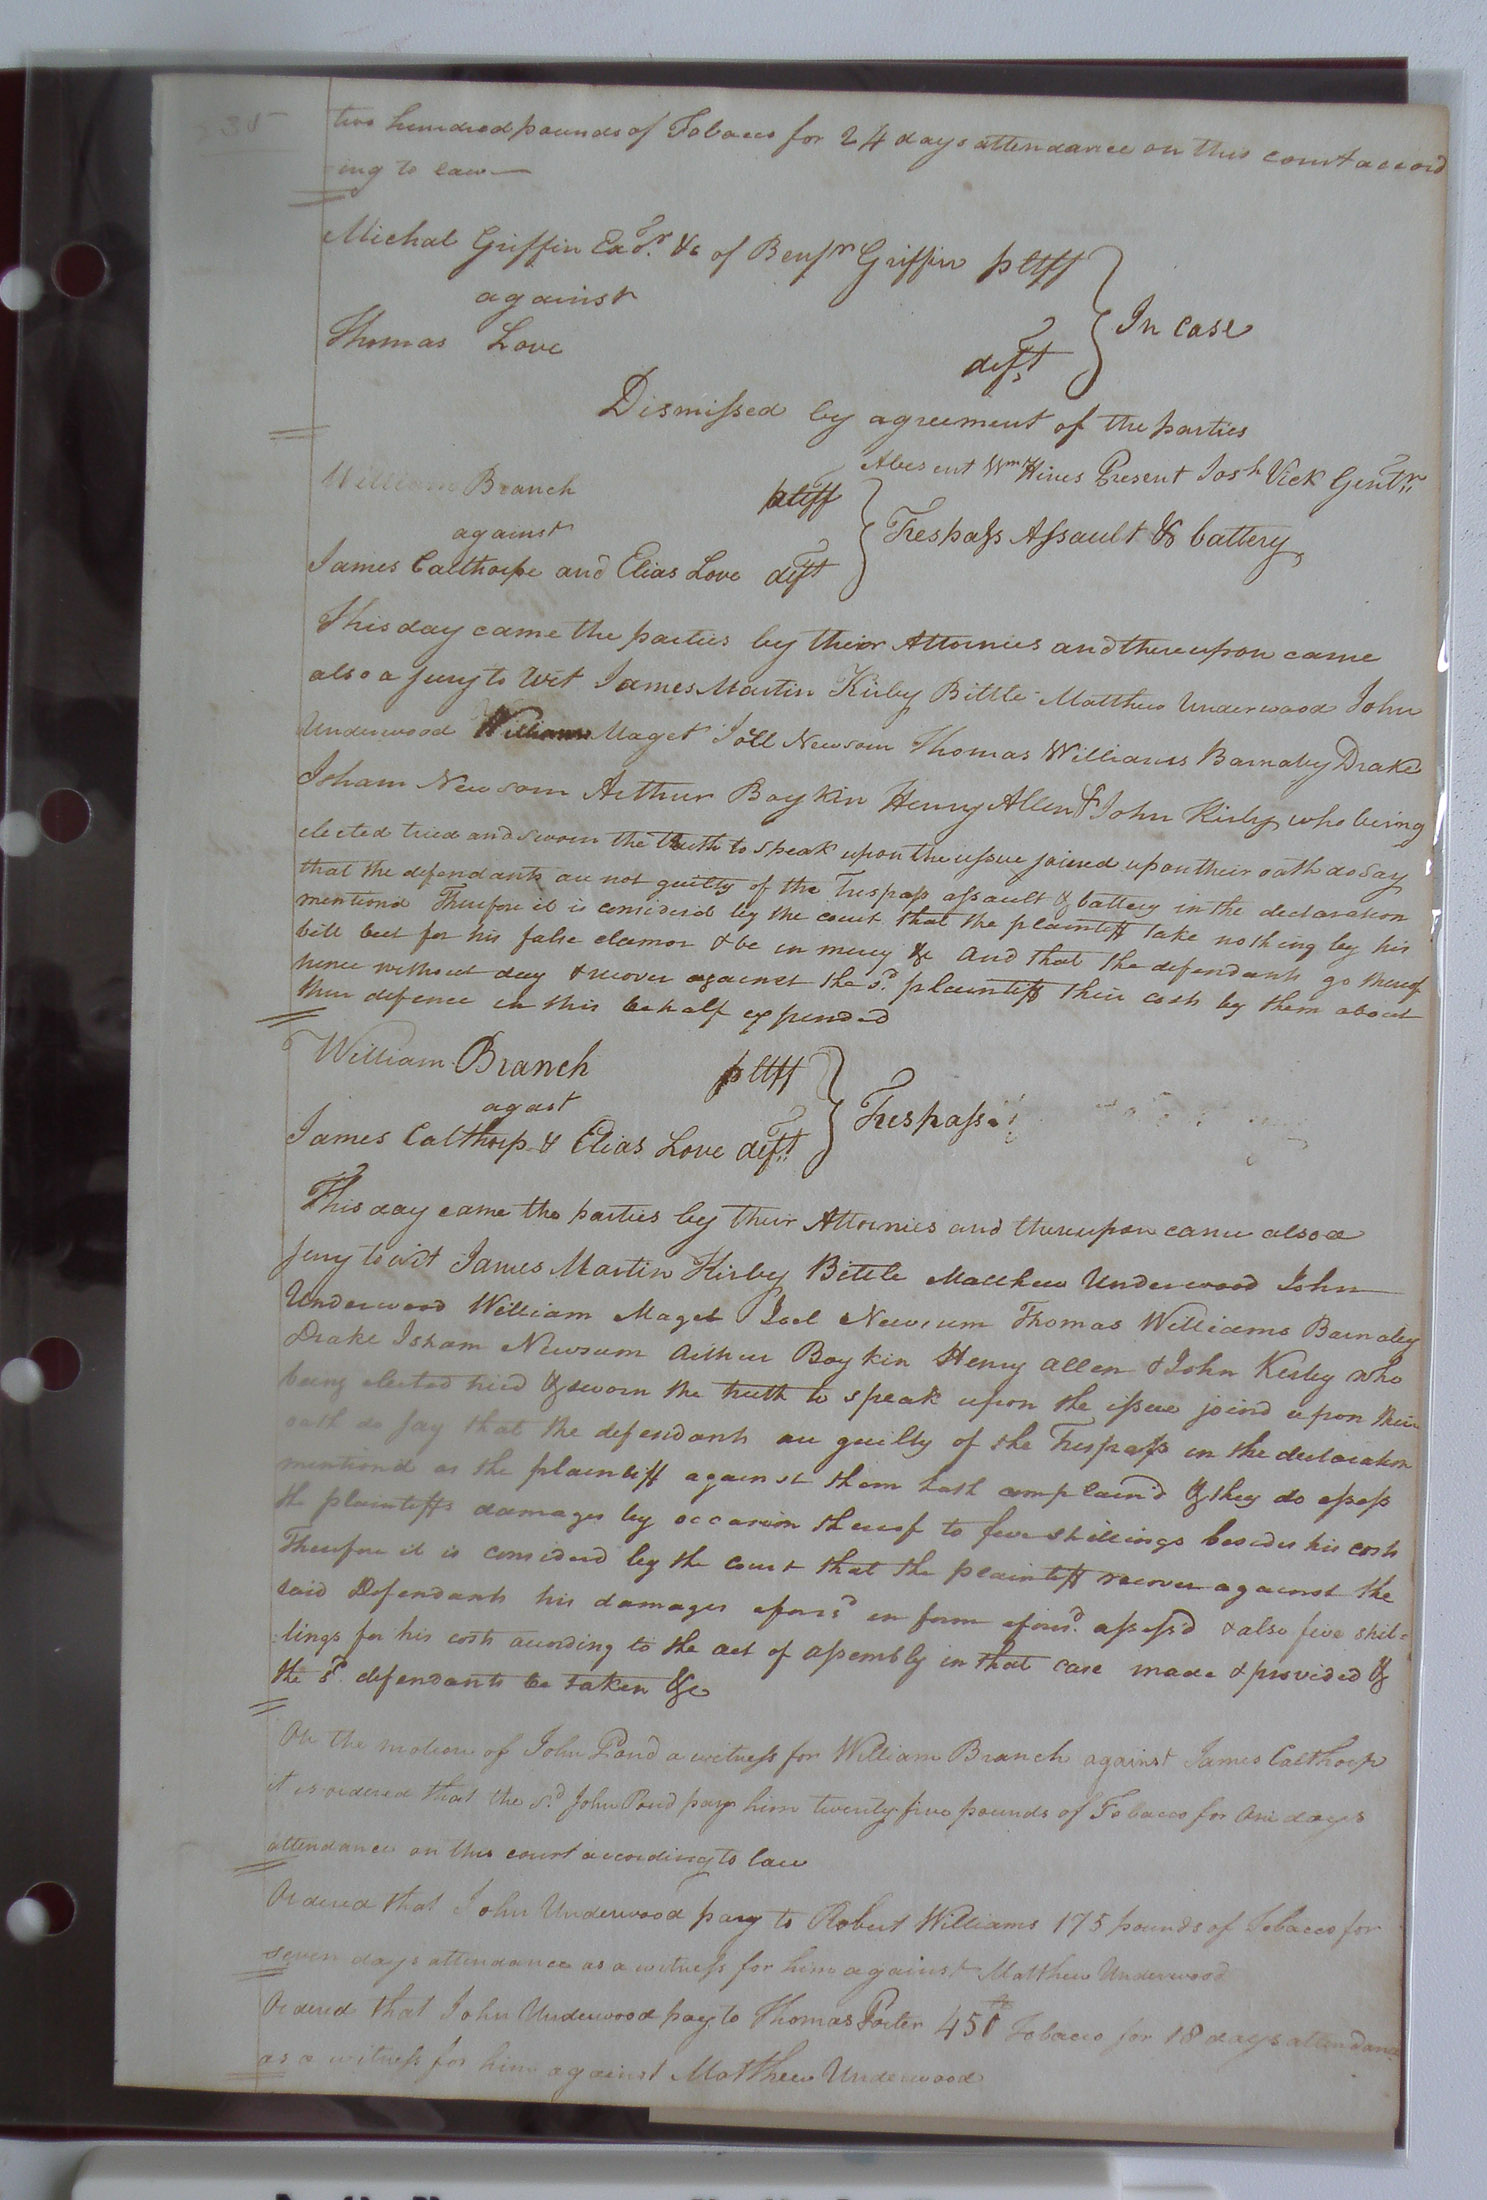 two hundred pounds of Tobacco for 24 days attendance on this court accord
ing to law
Michal Griffin Exor. &c of Benjn Griffin pltff
against
In case
Thomas Love
deft
Dismissed by agreement of the parties
Absent Wm Hines Present Josh Vick Gentn
William Branch pltff
against
Trespass Assault & battery
James Calthorpe and Elias Love deft
This day came the parties by their Attornies and thereupon came
also a jury to wit James Martin Kirby Bittle Matthew Underwood John
Underwood William Maget Joell Newsom Thomas Williams Barnaby Drake
Isham Newsom Arthur Boykin Henry Allen & John Kirby who being
elected tried and sworn the truth to speak upon the issue joined upon their oath do say
that the defendants are not guilty of the Trespass assault & battery in the declaration
mentiond Therefore it is considerd by the court that the plaintiff take nothing by his
bill but for his false clamor & be in mercy &c And that the defendants go thereof
hence without day & recover against the sd. plaintiff their costs by them about
their defence in this behalf expended
William Branch pltff
agast
Trespass
James Calthorp & Elias Love deft
This day came the parties by their Attornies and thereupon came also a
jury to wit James Martin Kirby Bittle Matthew Underwood John
Underwood William Maget Joel Newsum Thomas Williams Barnaby
Drake Isham Newsum Arthur Boykin Henry Allen & John Kirby who
being elected tried & sworn the truth to speak upon the issue joind upon their
oath do say that the defendants are guilty of the Trespass in the declaration
mentiond as the plaintiff against them hath complain'd & they do assess
the plaintiffs damages by occasion thereof to five shillings besides his costs
Therefore it is considerd by the court that the plaintiff recover against the
said Defendants his damages aforsd. in form aforsd. assess'd & also five shil=
lings for his costs according to the act of assembly in that case made & provided &
the sd. defendants be taken &c
On the motion of John Pond a witness for William Branch against James Calthorp
it is ordered that the sd. John Pond pay him twenty five pounds of Tobacco for One days
attendance on this court according to law
Ordered that John Underwood pay to Robert Williams 175 pounds of Tobacco for
seven days attendance as a witness for him against Matthew Underwood
Ordered that John Underwood pay to Thomas Porter 45 Tobacco for 18 days attendance
as a witness for him against Matthew Underwood